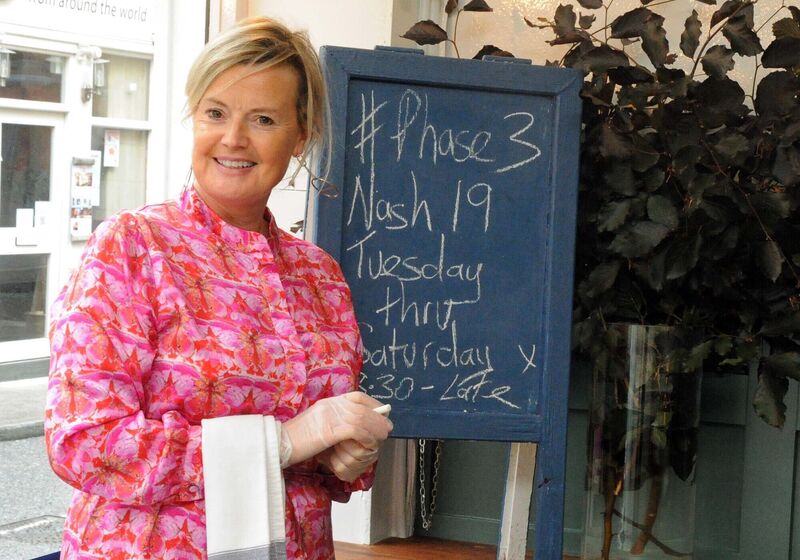 from around the world
#Phase 3
Nash 19
Tuesday
thru
Saturday x
:30 - Late